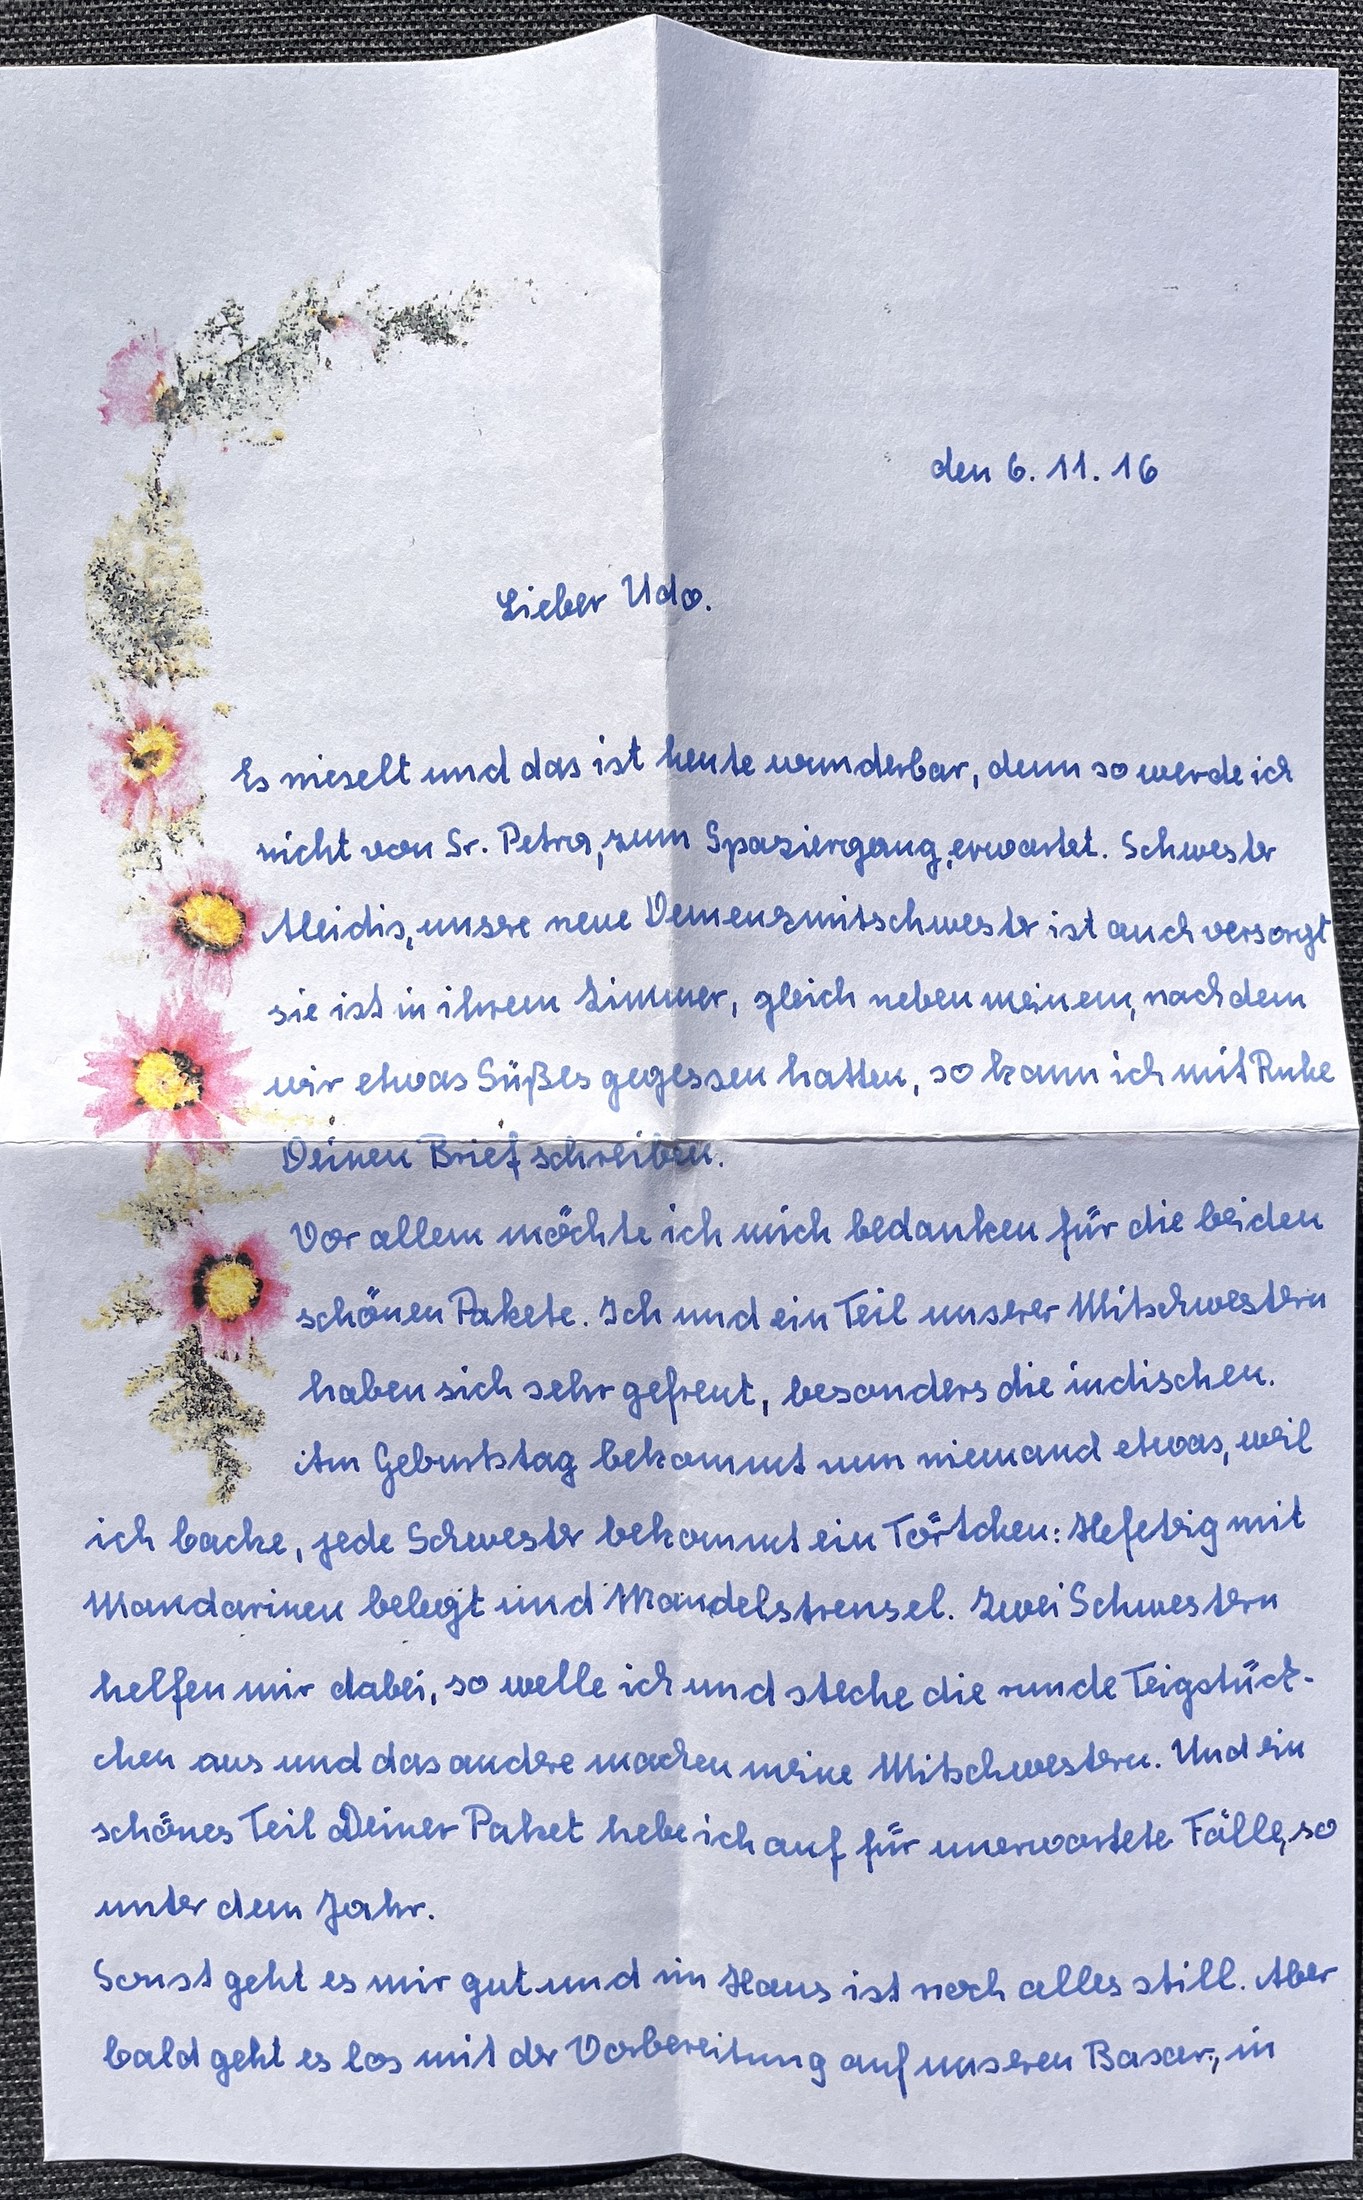 den 6. 11. 16
Lieber Udo.
Es nieselt und das ist heute wunderbar, denn so werde ich
nicht von Sr. Petra, zum Spaziergang, erwartet. Schwester
Aleidis, unsere neue Demenzmitschwester ist auch versorgt
sie ist in ihrem Zimmer, gleich neben meinem, nachdem
wir etwas Süßes gegessen hatten, so kann ich mit Ruhe
Deinen Brief schreiben.
Vor allem möchte ich mich bedanken für die beiden
schönen Pakete. Ich und ein Teil unserer Mitschwestern
haben sich sehr gefreut, besonders die indischen.
Am Geburtstag bekommt nun niemand etwas, weil
ich backe, jede Schwester bekommt ein Törtchen: Hefeteig mit
Mandarinen belegt und Mandelstreusel. Zwei Schwestern
helfen mir dabei, so welle ich und steche die runde Teigstück-
chen aus und das andere machen meine Mitschwestern. Und ein
schönes Teil Deiner Paket hebe ich auf für unerwartete Fälle, so
unter dem Jahr.
Sonst geht es mir gut und im Haus ist noch alles still. Aber
bald geht es los mit der Vorbereitung auf unseren Basar, in